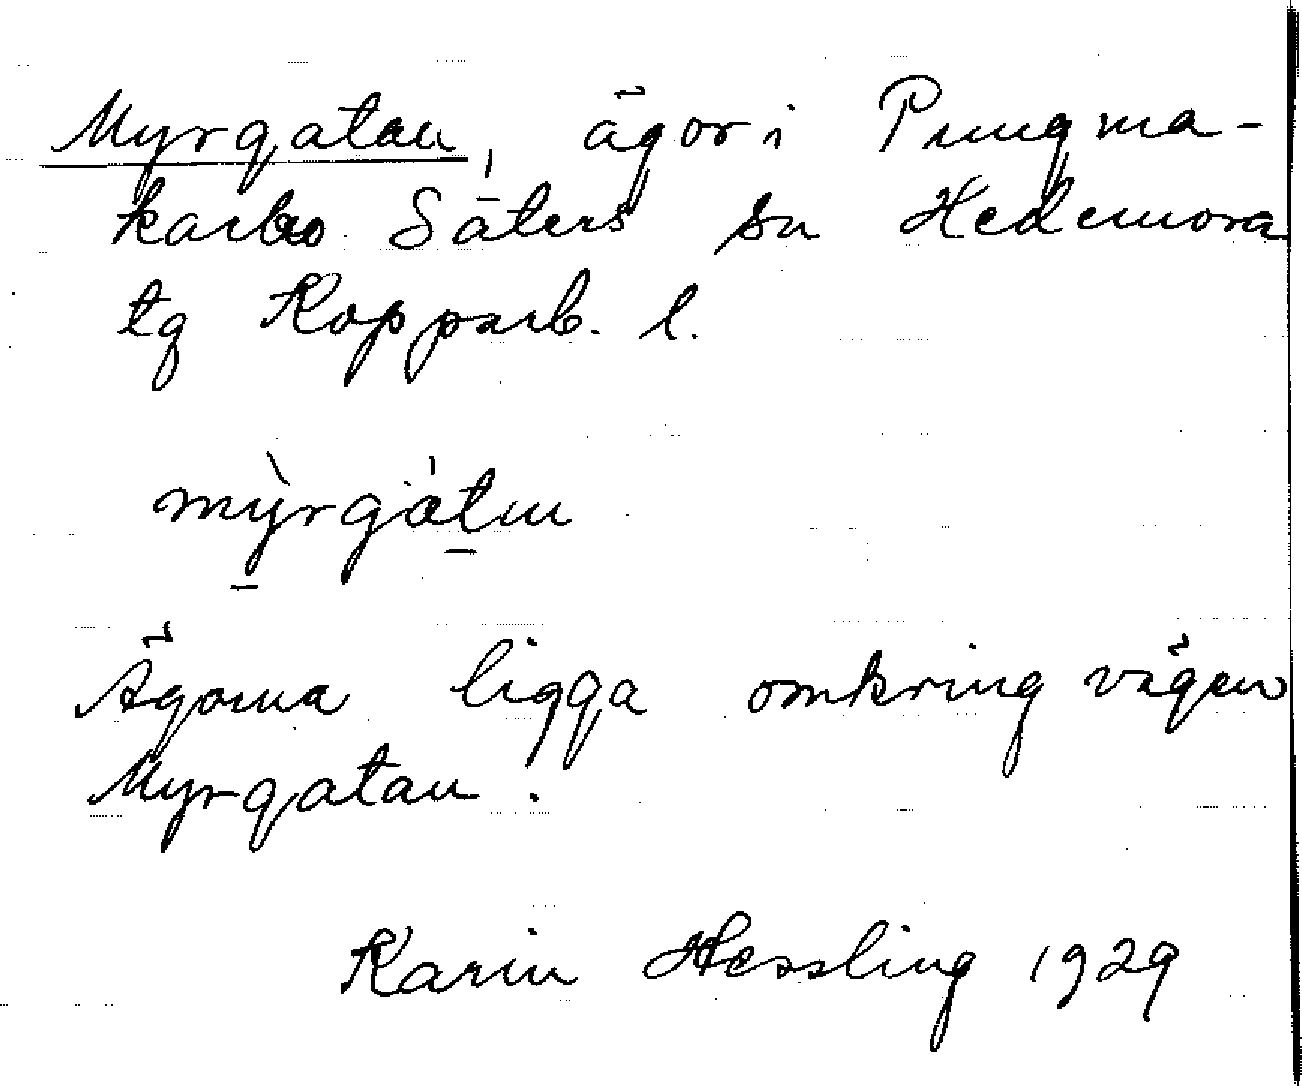 Myrgatan, ägor i Pungma-
karbo Säters sn Hedemora
tg Kopparb. l.
mỳrgátn
Ägorna ligga omkring vägen
Myrgatan.
Karin Hessling 1929